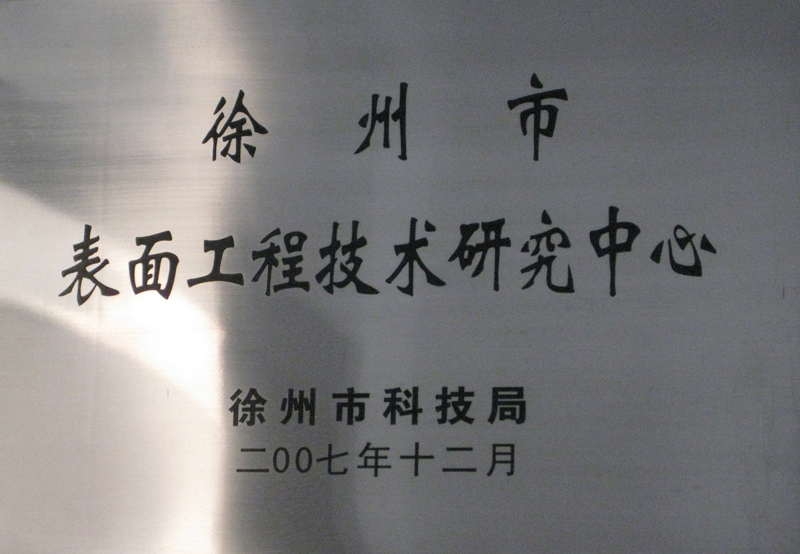 徐州市
表面工程技术研究中心
徐州市科技局
二00七年十二月